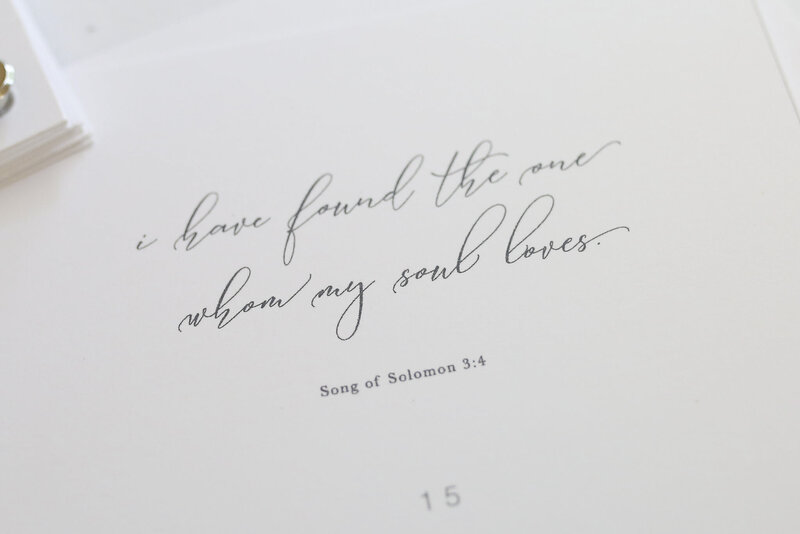 i have found the one
whom my soul loves.
Song of Solomon 3:4
15